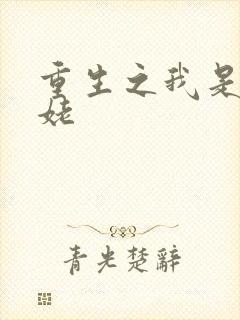 重生之我是
姥
青光楚辭